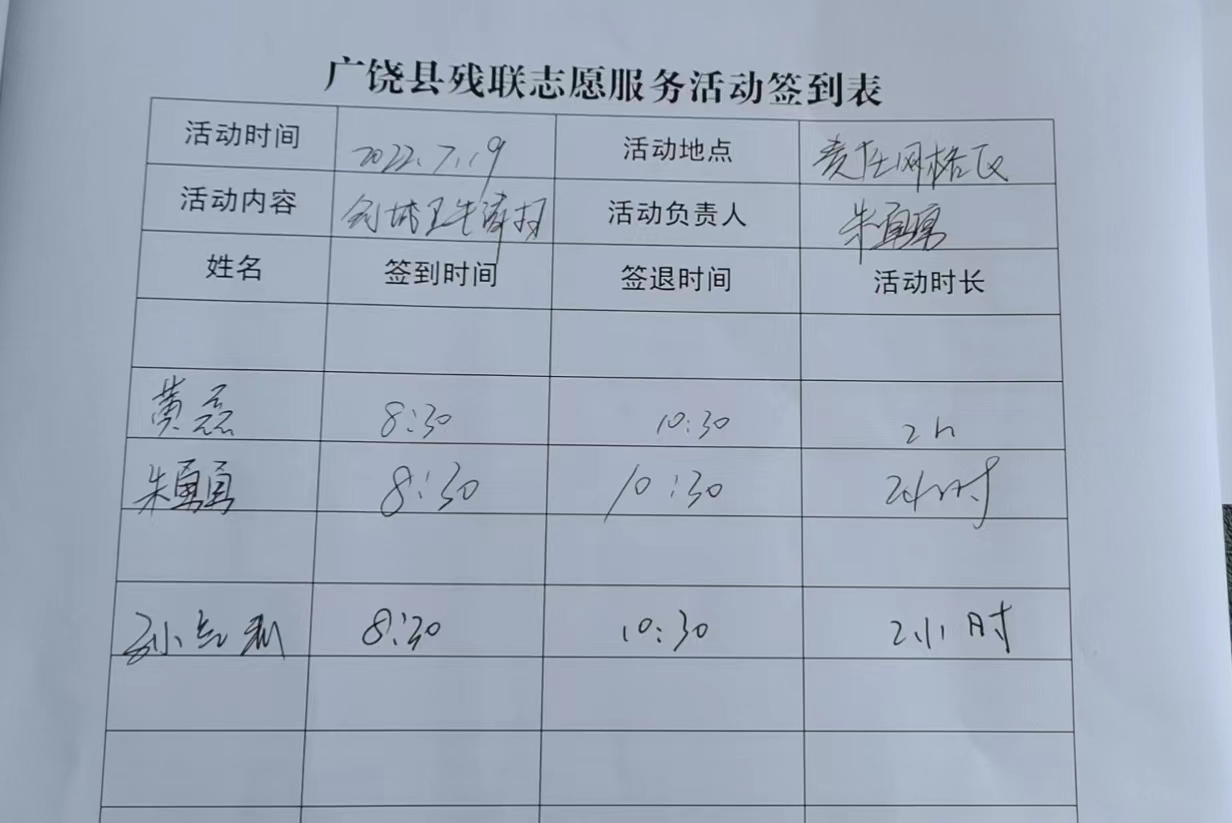 广饶县残联志愿服务活动签到表
活动时间 2022.7.19 活动地点 责任网格区
活动内容 创城卫生清扫 活动负责人 朱勇勇
姓名 签到时间 签退时间 活动时长
黄磊 8:30 10:30 2h
朱勇勇 8:30 10:30 2小时
孙 8:30 10:30 2小时